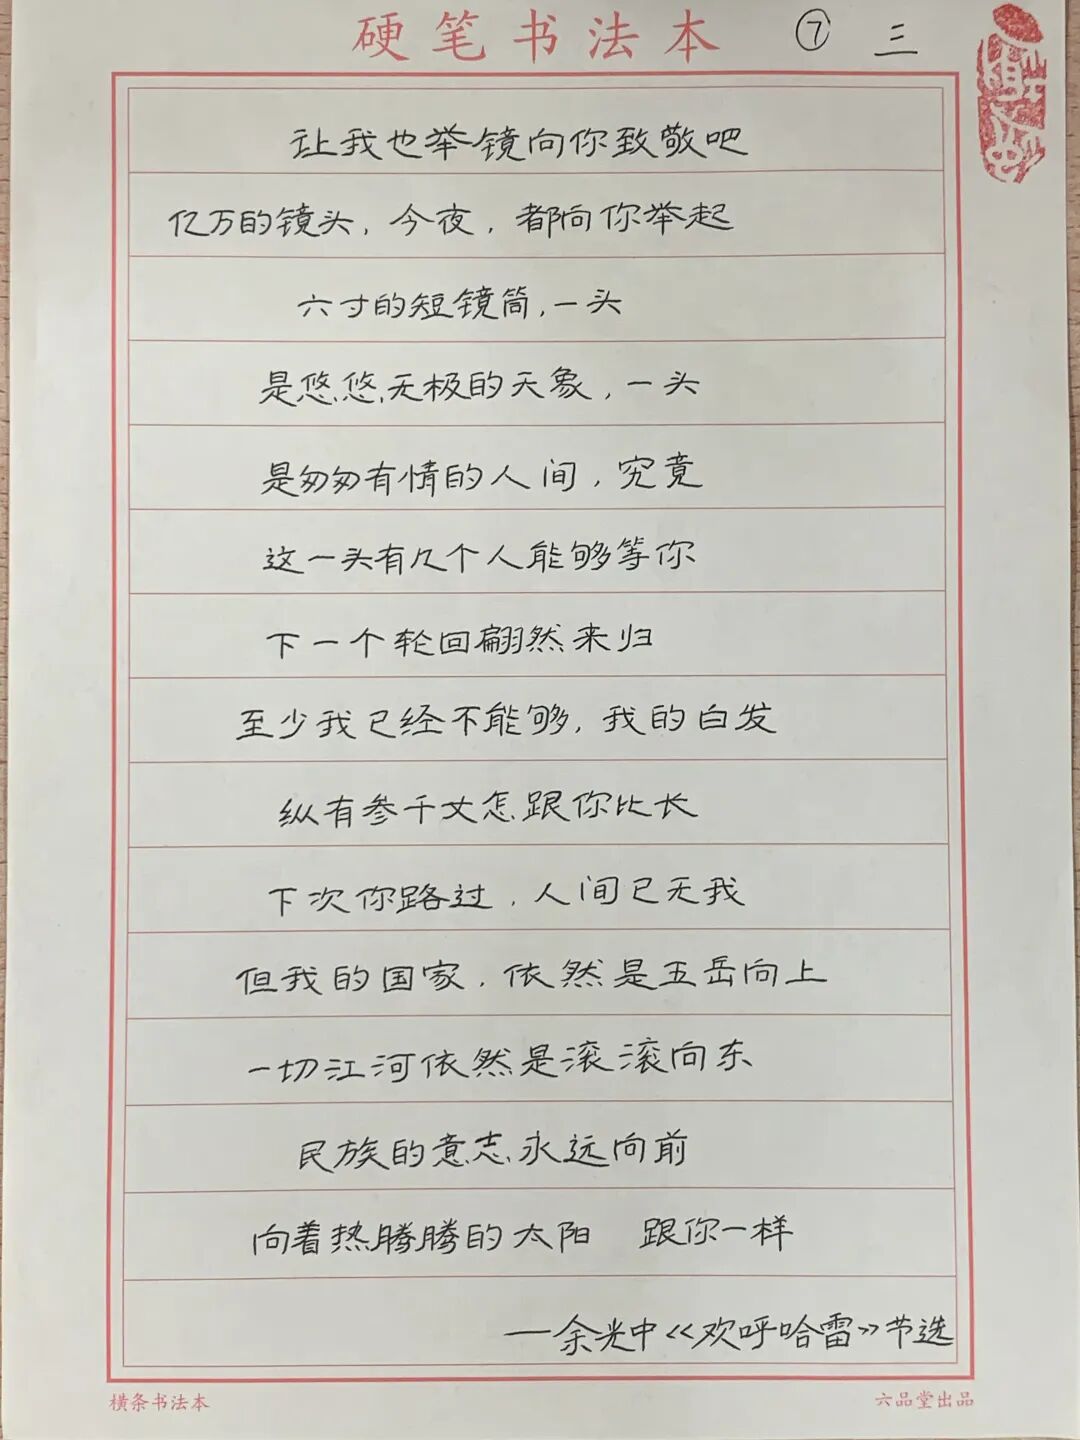 硬笔书法本 ⑦ 三
让我也举镜向你致敬吧
亿万的镜头，今夜，都向你举起
六寸的短镜筒，一头
是悠悠无极的天象，一头
是匆匆有情的人间，究竟
这一头有几个人能够等你
下一个轮回翩然来归
至少我已经不能够，我的白发
纵有叁千丈怎跟你比长
下次你路过，人间已无我
但我的国家，依然是五岳向上
一切江河依然是滚滚向东
民族的意志永远向前
向着热腾腾的太阳 跟你一样
——余光中《欢呼哈雷》节选
横条书法本 六品堂出品